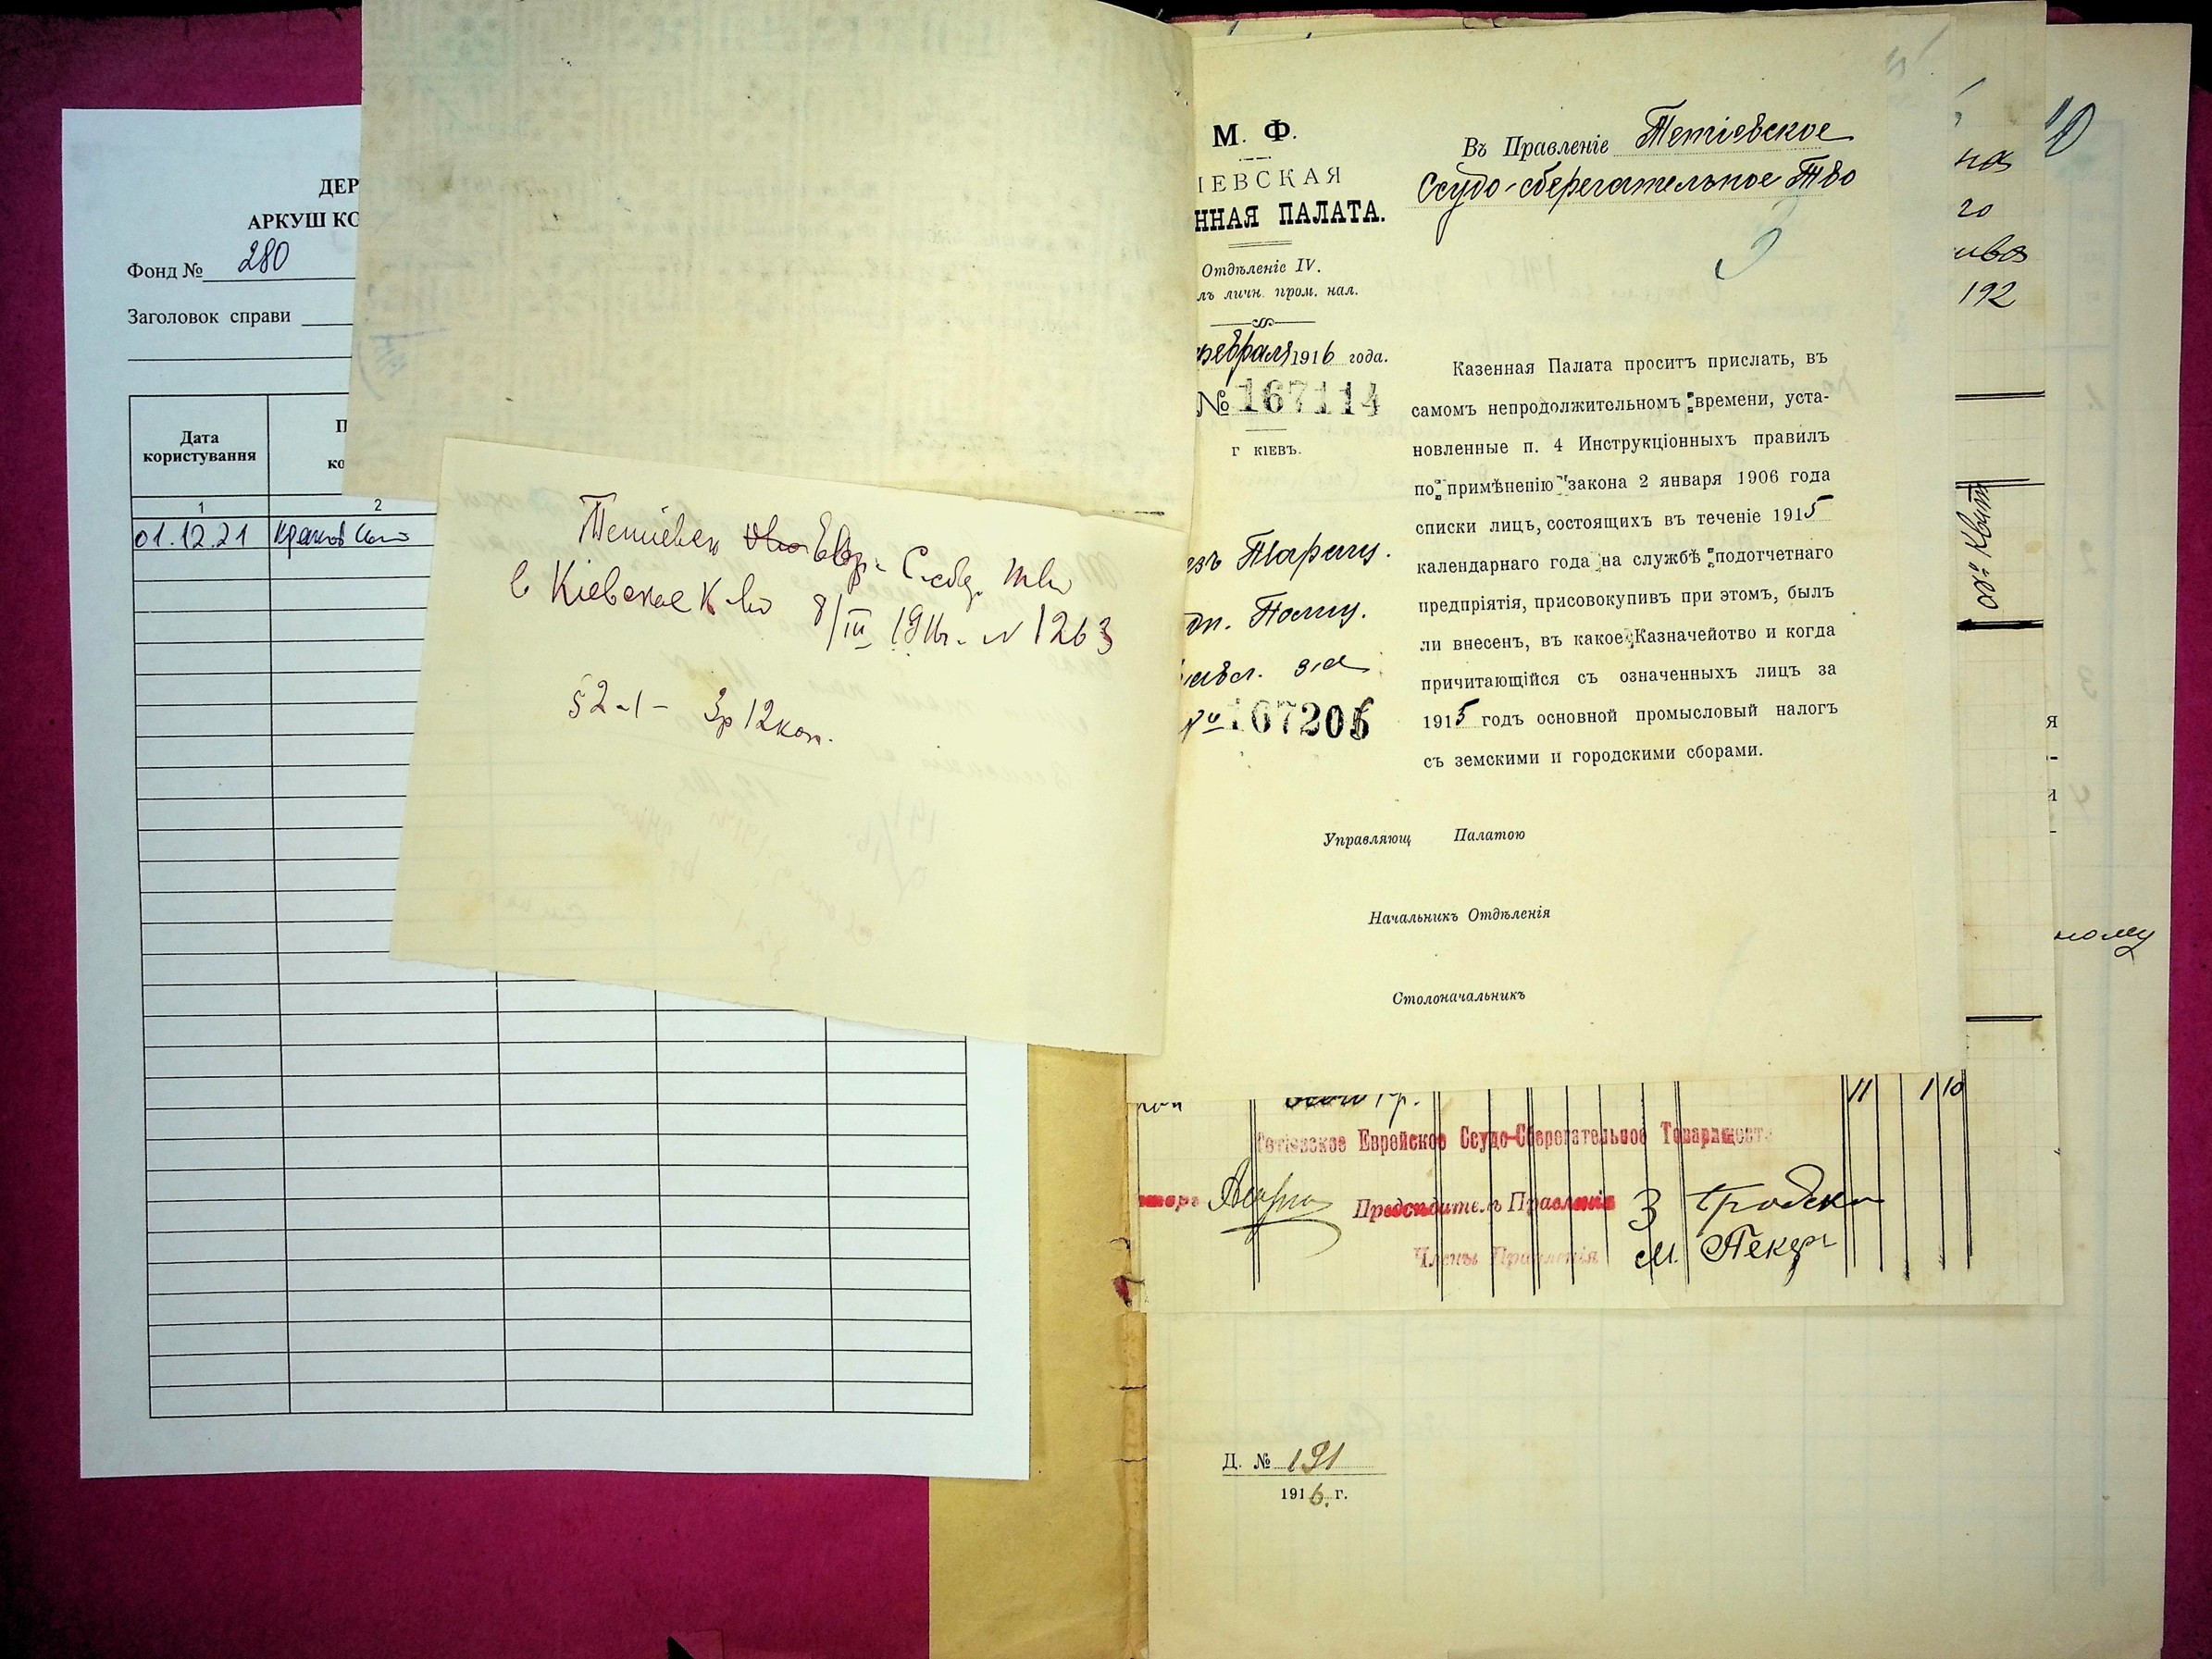 ДЕР
АРКУШ КО
Фонд № 280
Заголовок справи
Дата
користування
П
ко
1
2
01.12.21
Тетіевск Евр. С. сбер. тво
в Кіевское К-во 8/III 1916г. N 1263
§2-1- 3р 12коп.
М. Ф.
ІЕВСКАЯ
ННАЯ ПАЛАТА.
Отдѣленіе IV.
лъ личн. пром. нал.
февраля 1916 года.
№ 167114
г КІЕВЪ.
Таращ.
дп. Помщ.
за
№ 167206
Въ Правленіе Тетіевское
Ссудо-сберегательное Тво
3
Казенная Палата проситъ прислать, въ
самомъ непродолжительномъ времени, уста-
новленные п. 4 Инструкціонныхъ правилъ
по примѣненію закона 2 января 1906 года
списки лицъ, состоящихъ въ теченіе 1915
календарнаго года на службѣ подотчетнаго
предпріятія, присовокупивъ при этомъ, былъ
ли внесенъ, въ какое Казначейотво и когда
причитающійся съ означенныхъ лицъ за
1915 годъ основной промысловый налогъ
съ земскими и городскими сборами.
Управляющ Палатою
Начальникъ Отдѣленія
Столоначальникъ
10
на
го
ива
192
я
-
и
ному
11 1 10
Тетіевское Еврейское Ссудо-Сберегательное Товарищест
Предсѣдатель Правленія З Гродски
Члены Правленія М. Пекер
Д. № 191
1916. г.